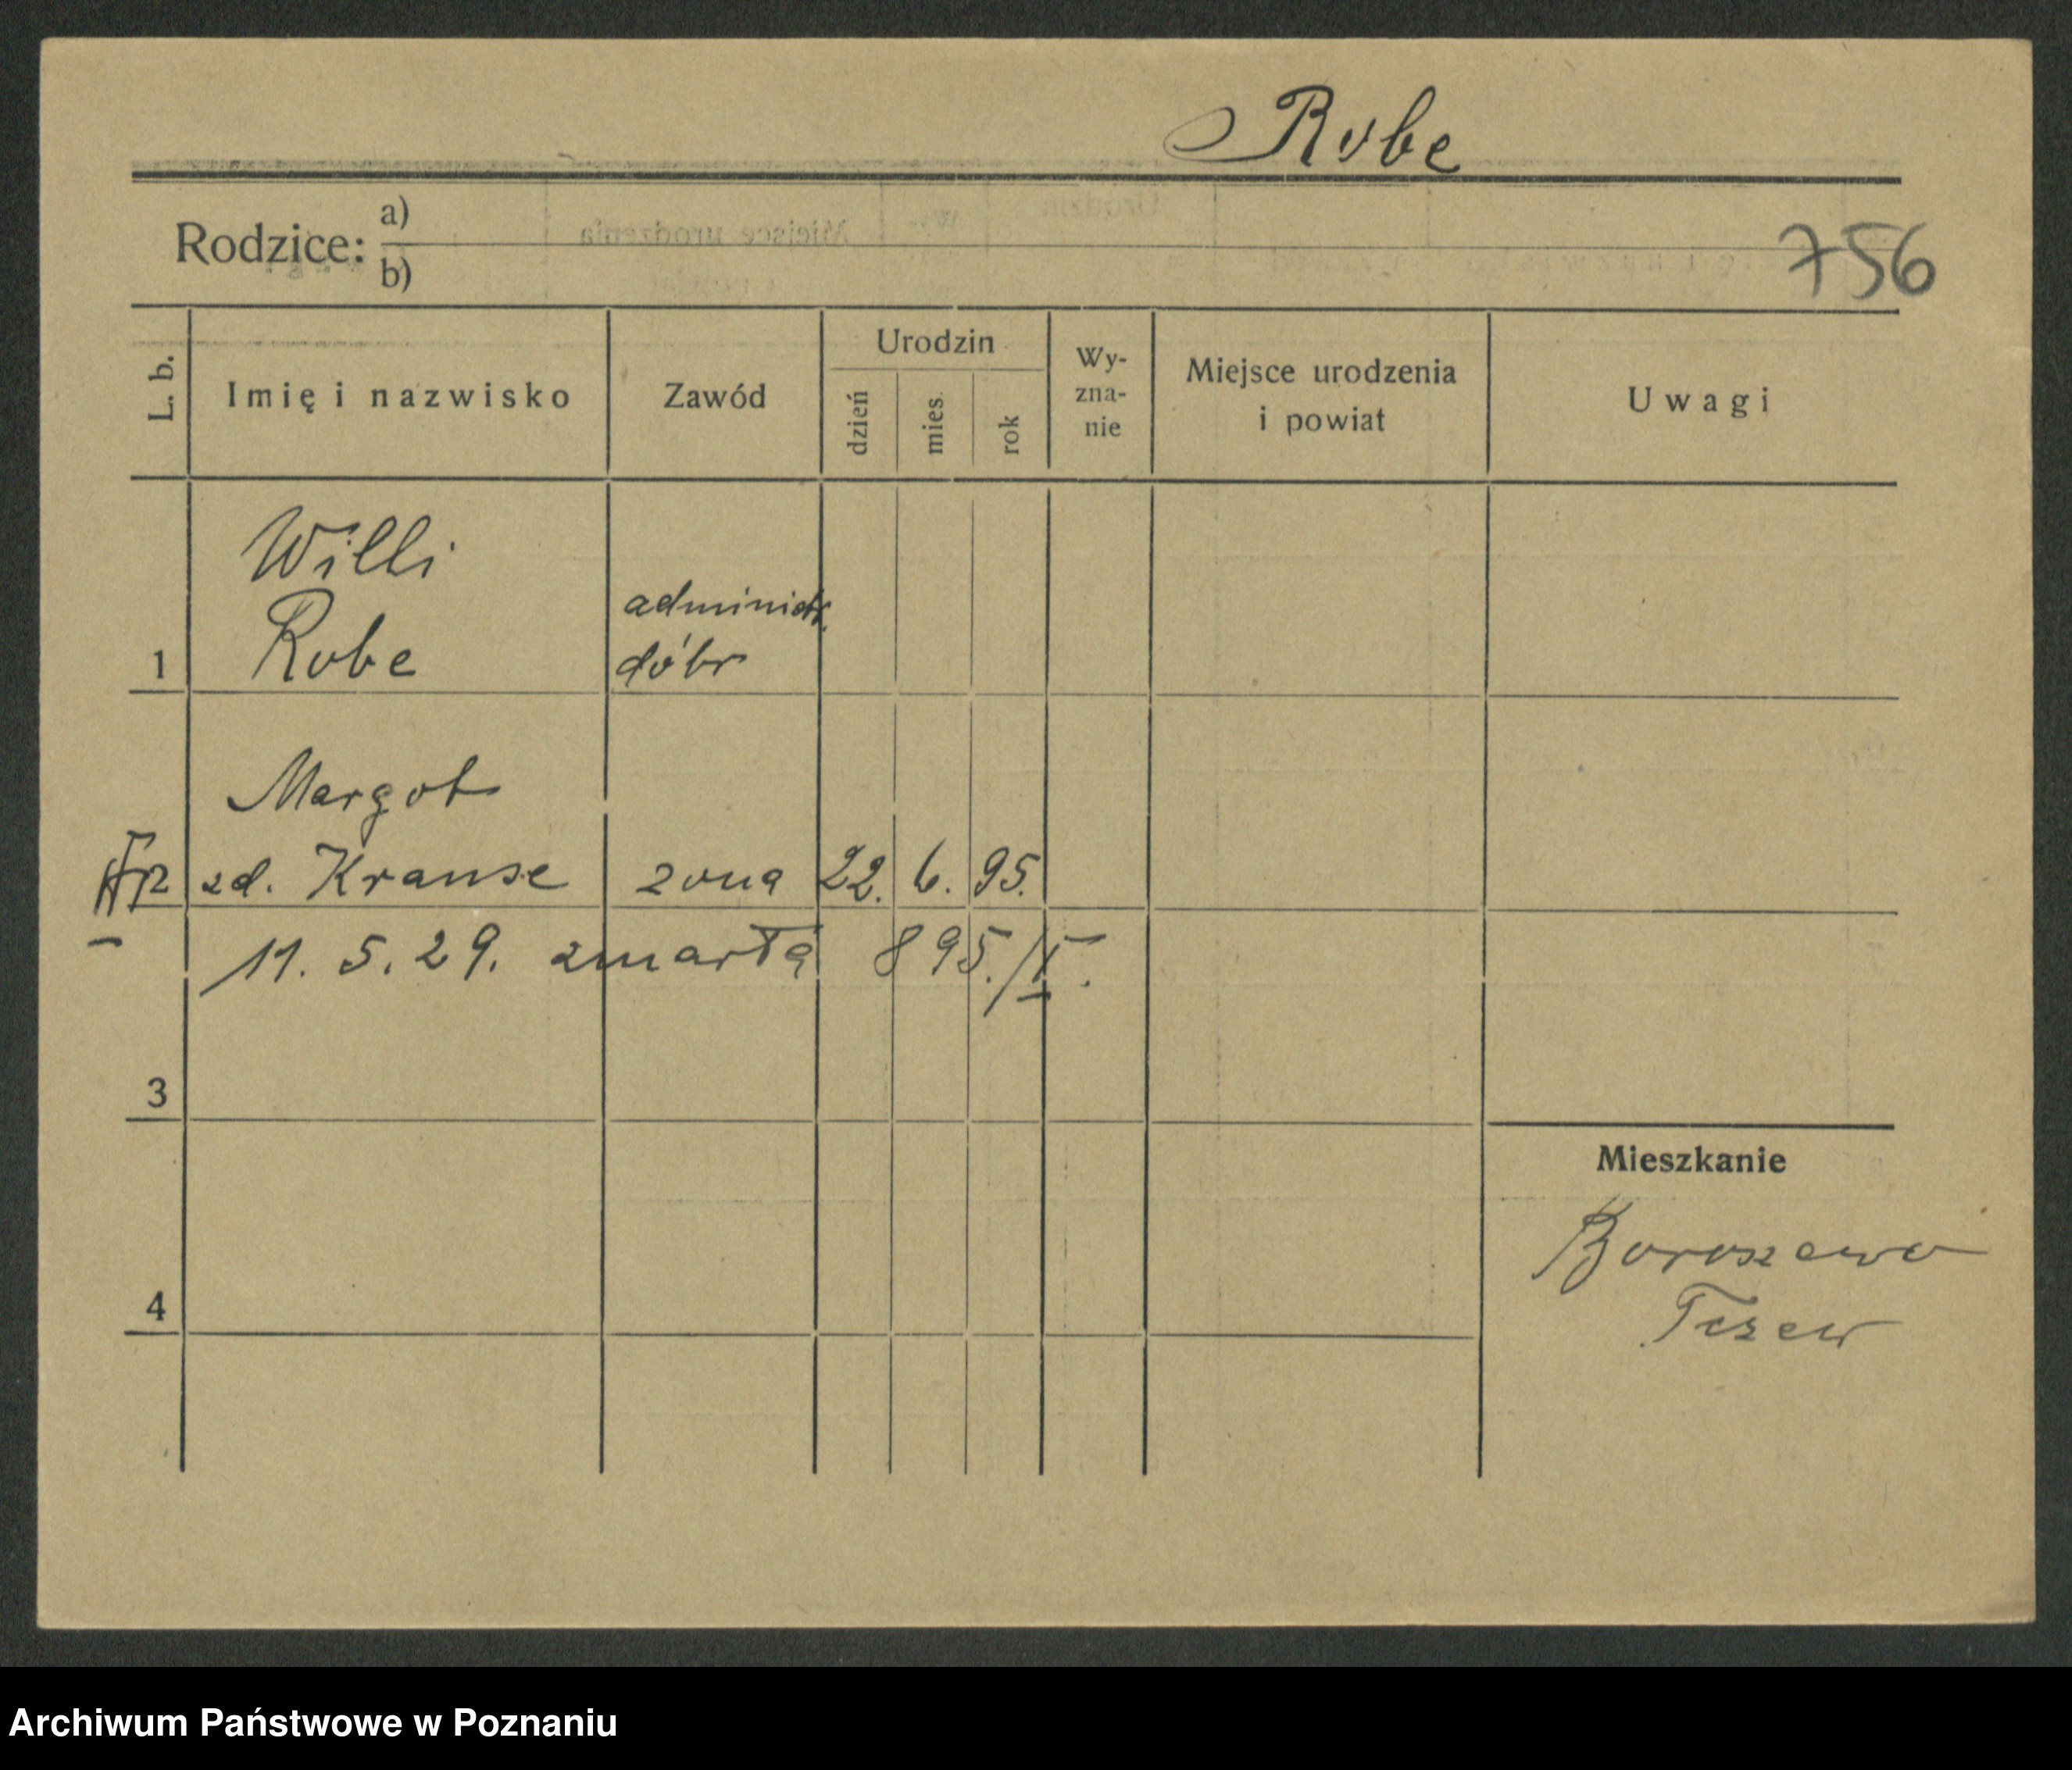 Robe
Rodzice: a)
b)
756
L. b.
Imię i nazwisko
Zawód
Urodzin
dzień
mies.
rok
Wy-
zna-
nie
Miejsce urodzenia
i powiat
Uwagi
Willi
administr.
1 Robe dóbr
Margot
2 zd. Krause zona 22. 6. 95.
11. 5. 29. zmarła 895./I.
3
Mieszkanie
Boroszewo
4 Tczew
Archiwum Państwowe w Poznaniu